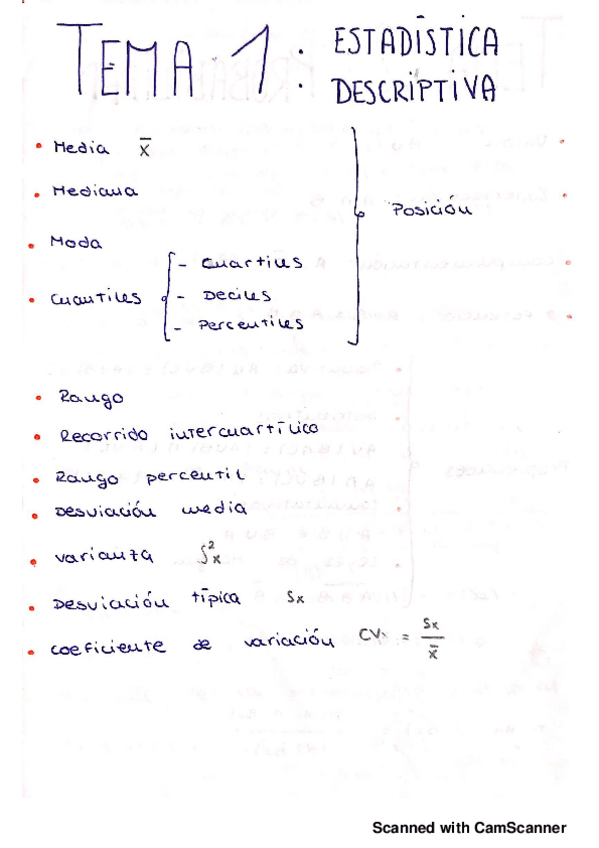 TEMA 1: ESTADÍSTICA
DESCRIPTIVA
• Media x̄
• Mediana
Posición
• Moda
• Cuantiles - Cuartiles
- Deciles
- Percentiles
• Rango
• Recorrido intercuartílico
• Rango percentil
• Desviación media
• varianza S²x
• Desviación típica Sx
• coeficiente de variación CVx = Sx / x̄
Scanned with CamScanner